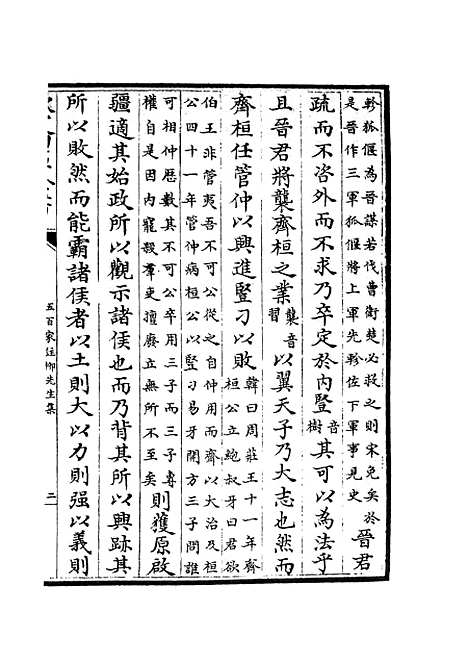 軫狐偃為晉謀若伐曹衛楚必救之則宋免矣於
是晉作三軍狐偃將上軍先軫佐下軍事見史
晉君
疏而不咨外而不求乃卒定於內豎音樹其可以為法乎
且晉君將襲齊桓之業襲音習以翼天子乃大志也然而
齊桓任管仲以興進豎刁以敗
韓曰周莊王十一年齊
桓公立鮑叔牙曰君欲
伯王非管夷吾不可公從之自仲用而齊以大治及桓
公四十一年管仲病桓公以豎刁易牙開方三子問誰
可相仲歷數其不可公卒用三子而三子專
權自是因內寵殺羣吏擅廢立無所不至矣
則獲原啟
疆適其始政所以觀示諸侯也而乃背其所以興跡其
所以敗然而能霸諸侯者以土則大以力則强以義則
五百家註柳先生集